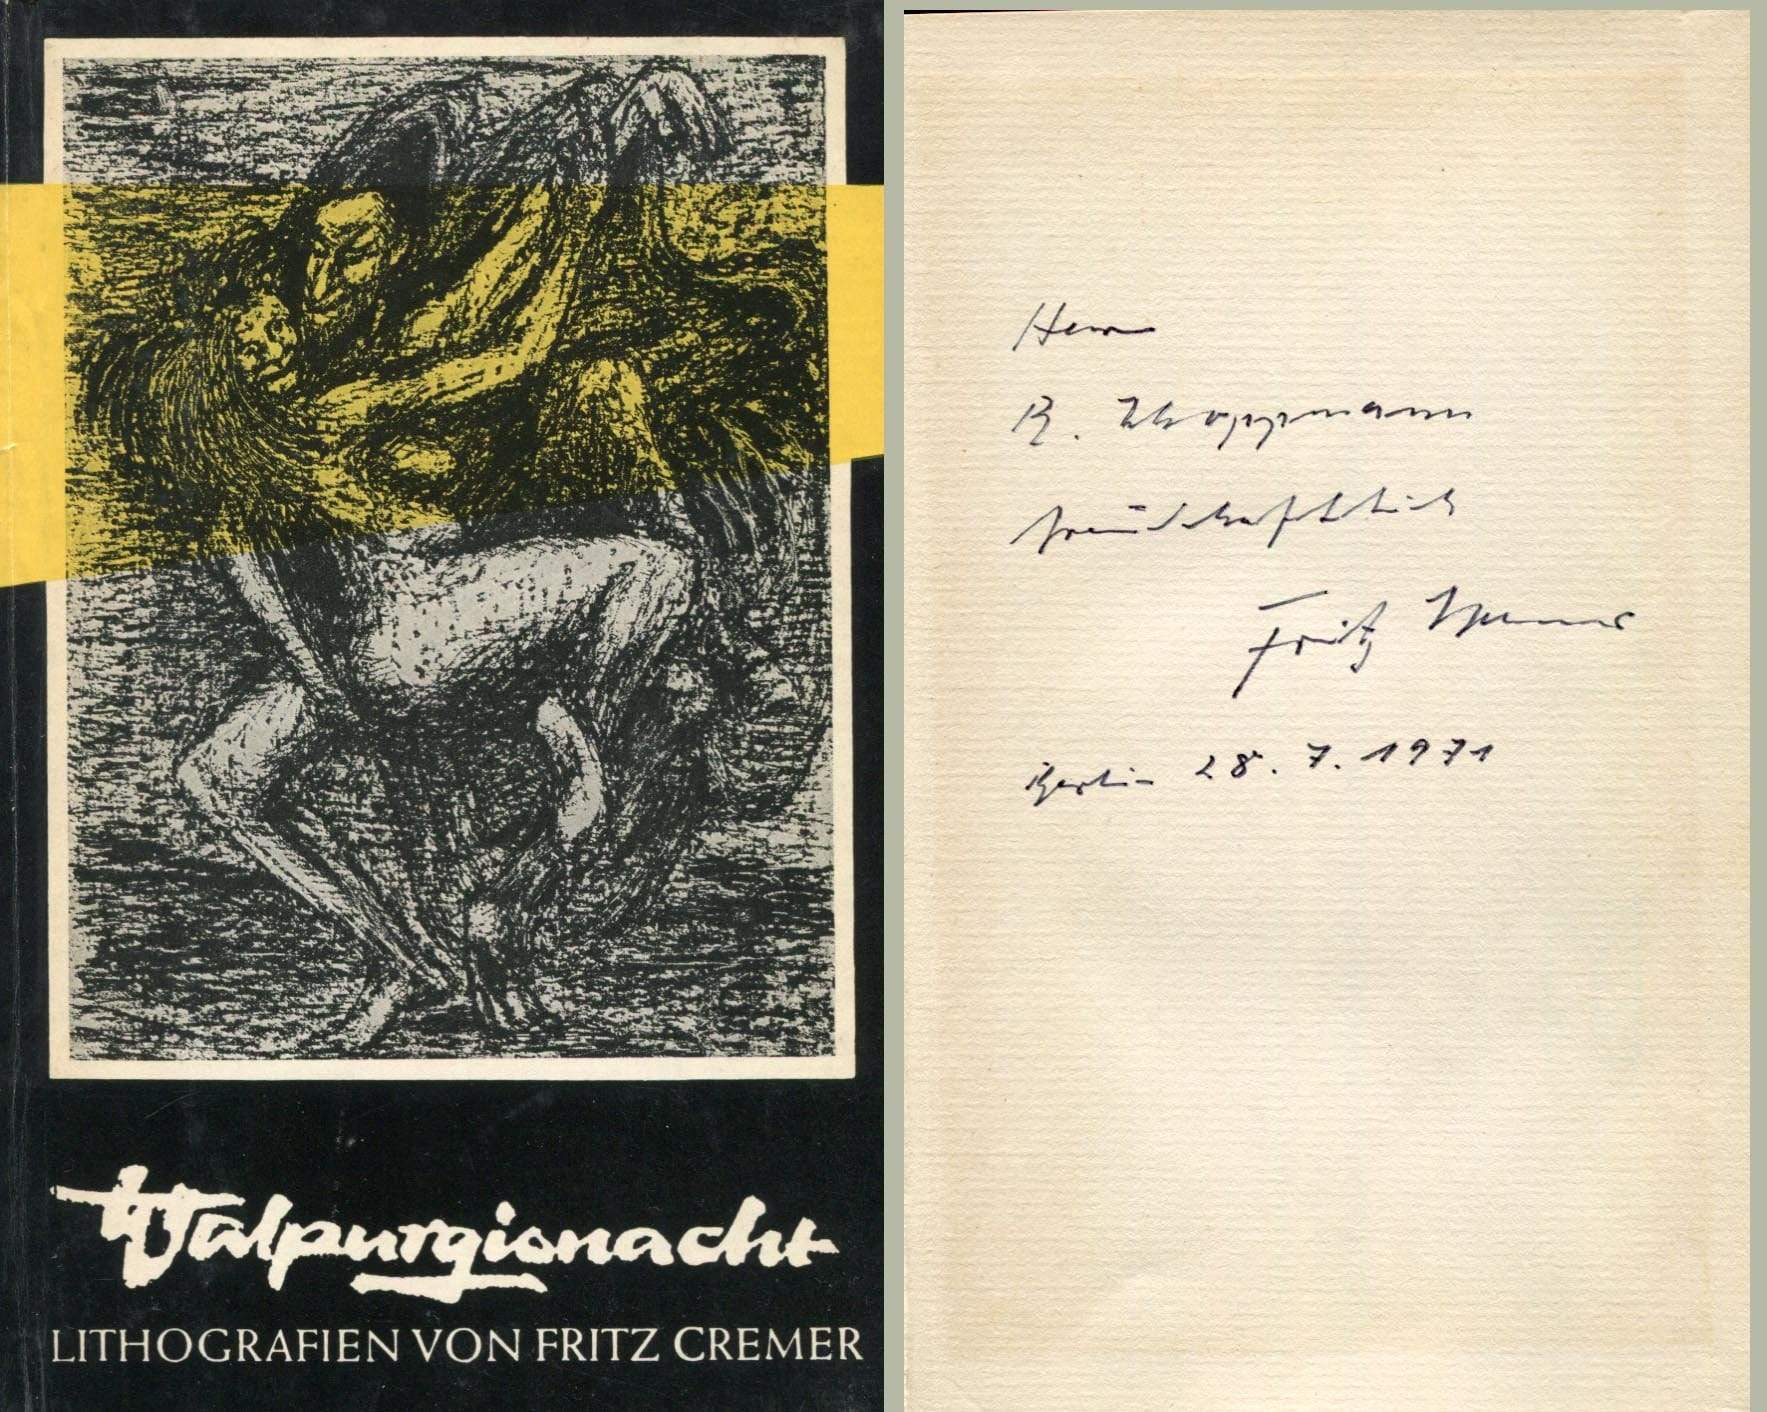 Walpurgisnacht
LITHOGRAFIEN VON FRITZ CREMER
Herrn
freundschaftlich
Fritz Cremer
Berlin 28. 7. 1971